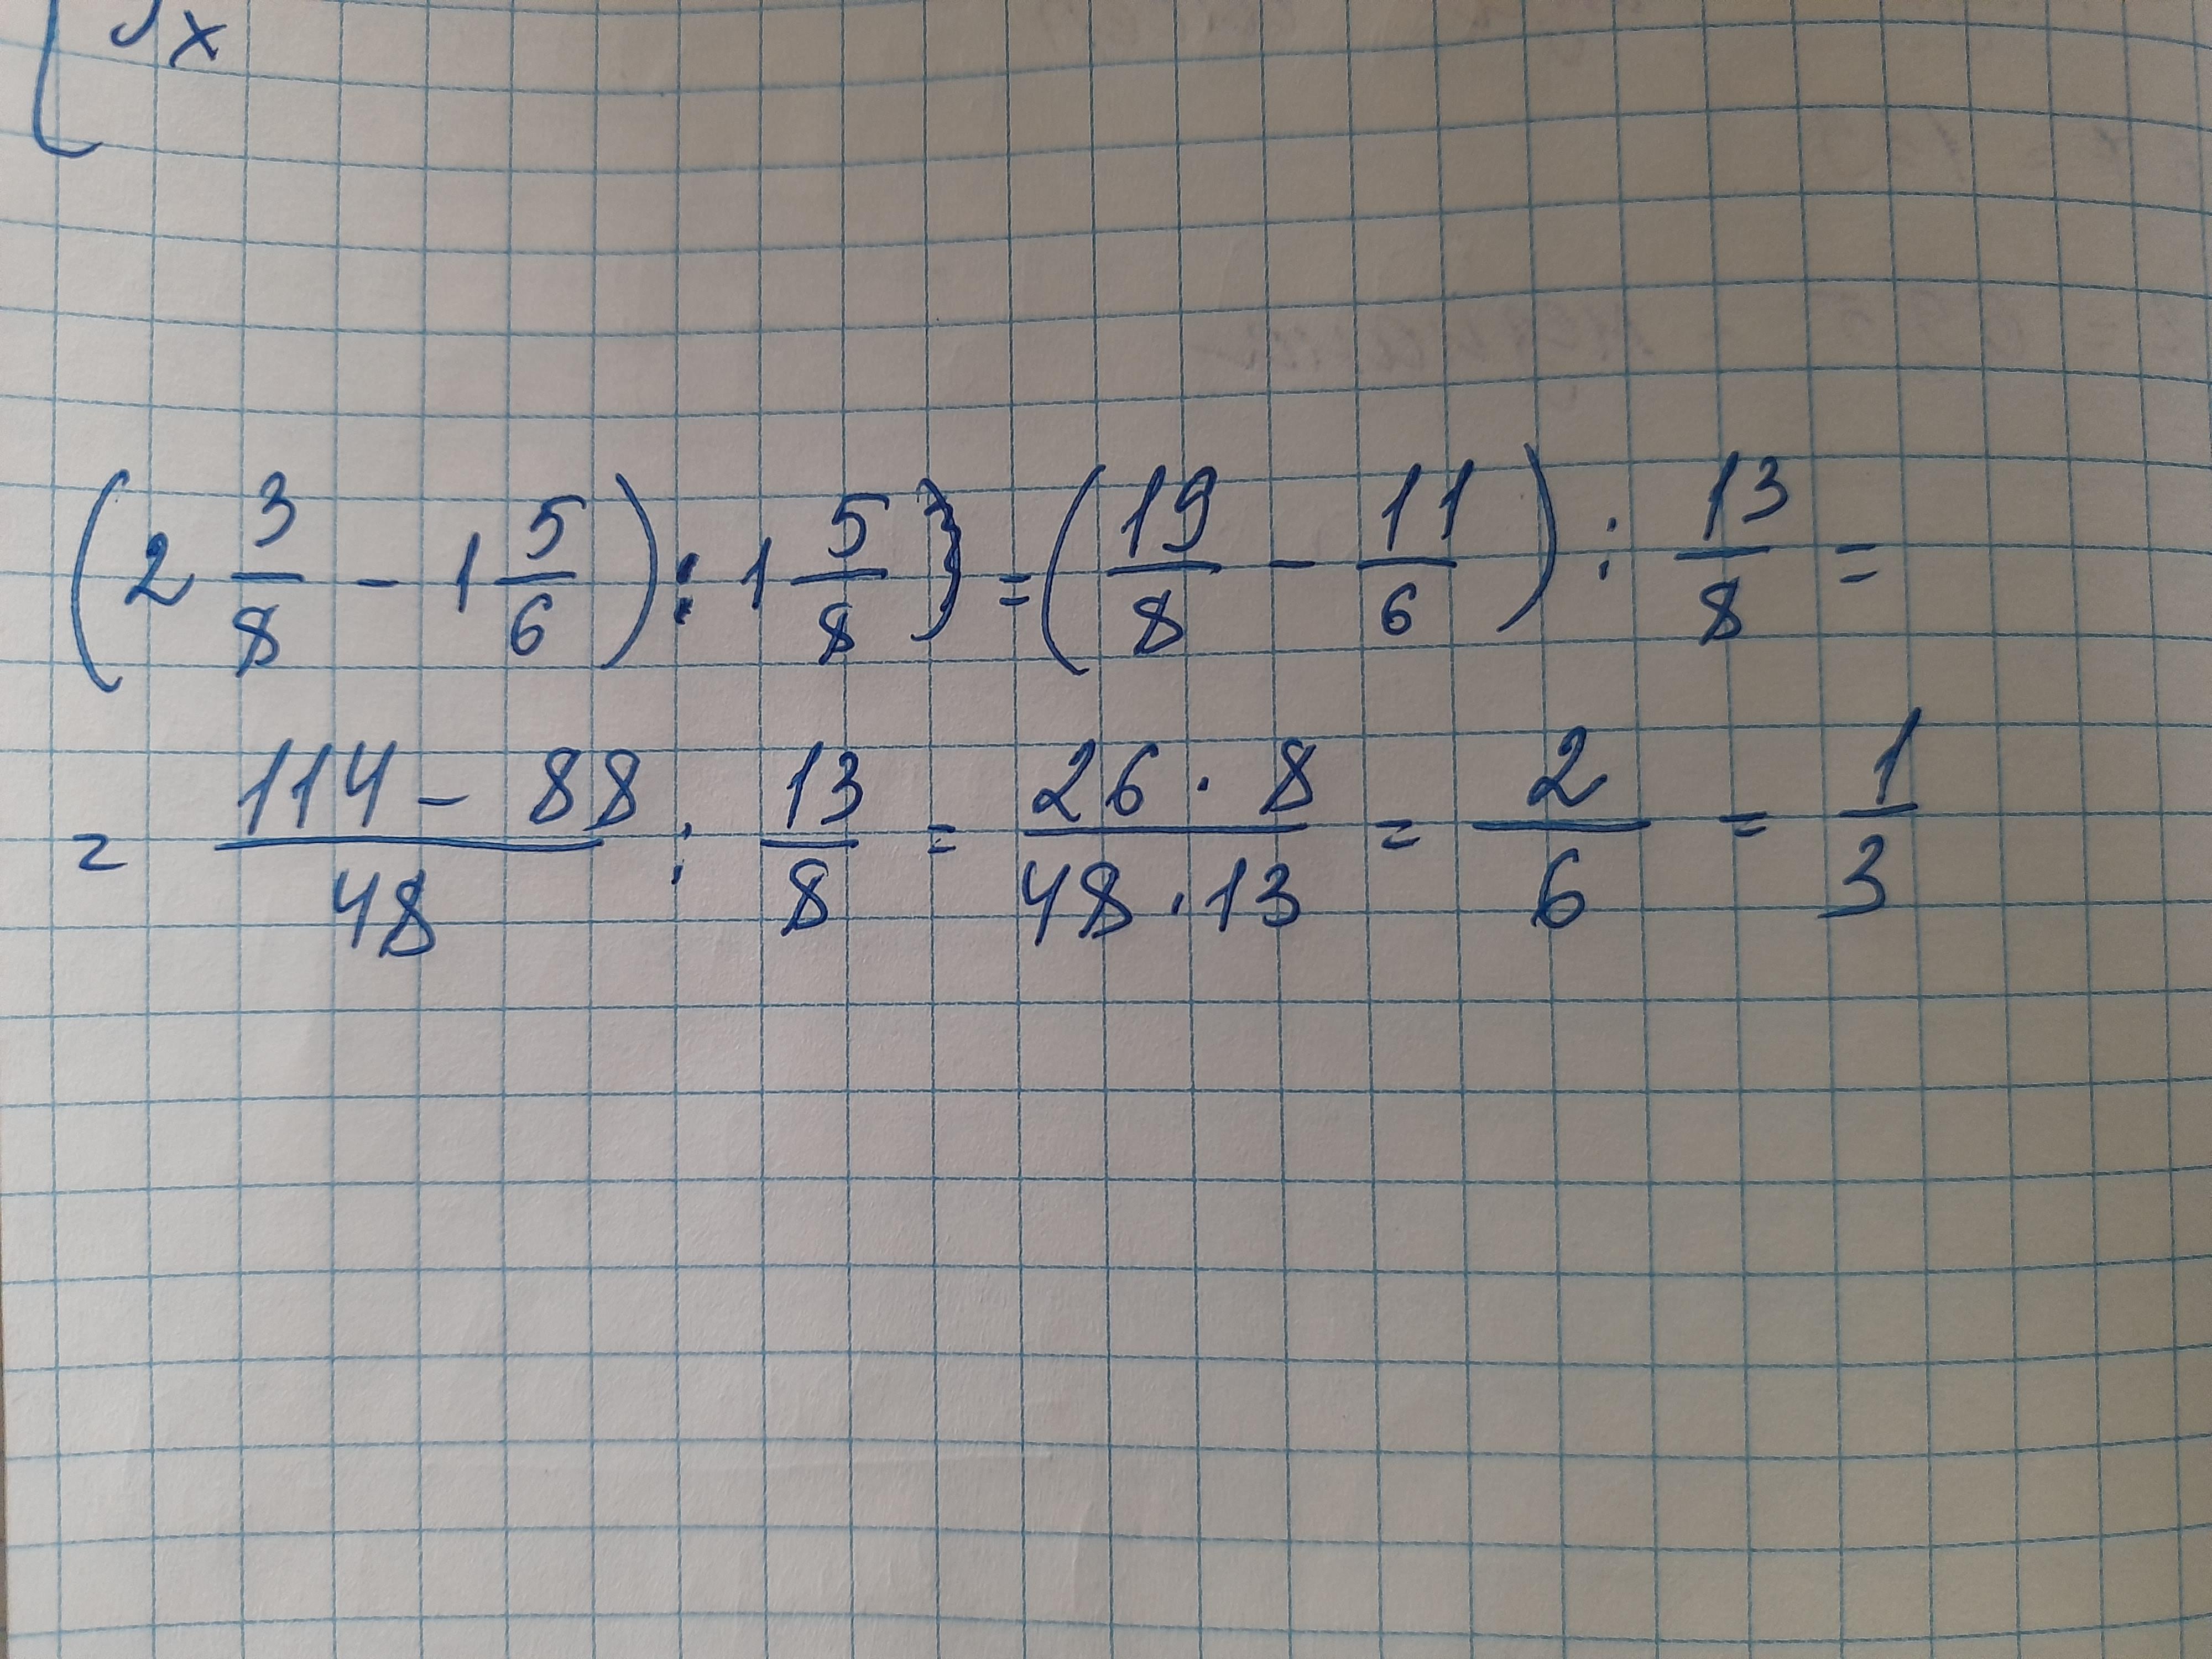 x
(2 3/8 - 1 5/6) : 1 5/8 = (19/8 - 11/6) : 13/8 =
= (114 - 88)/48 : 13/8 = (26 · 8)/(48 · 13) = 2/6 = 1/3